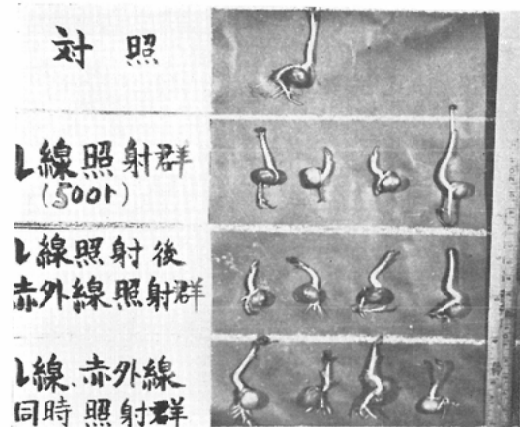 対照
レ線照射群
(500r)
レ線照射後
赤外線照射群
レ線、赤外線
同時照射群